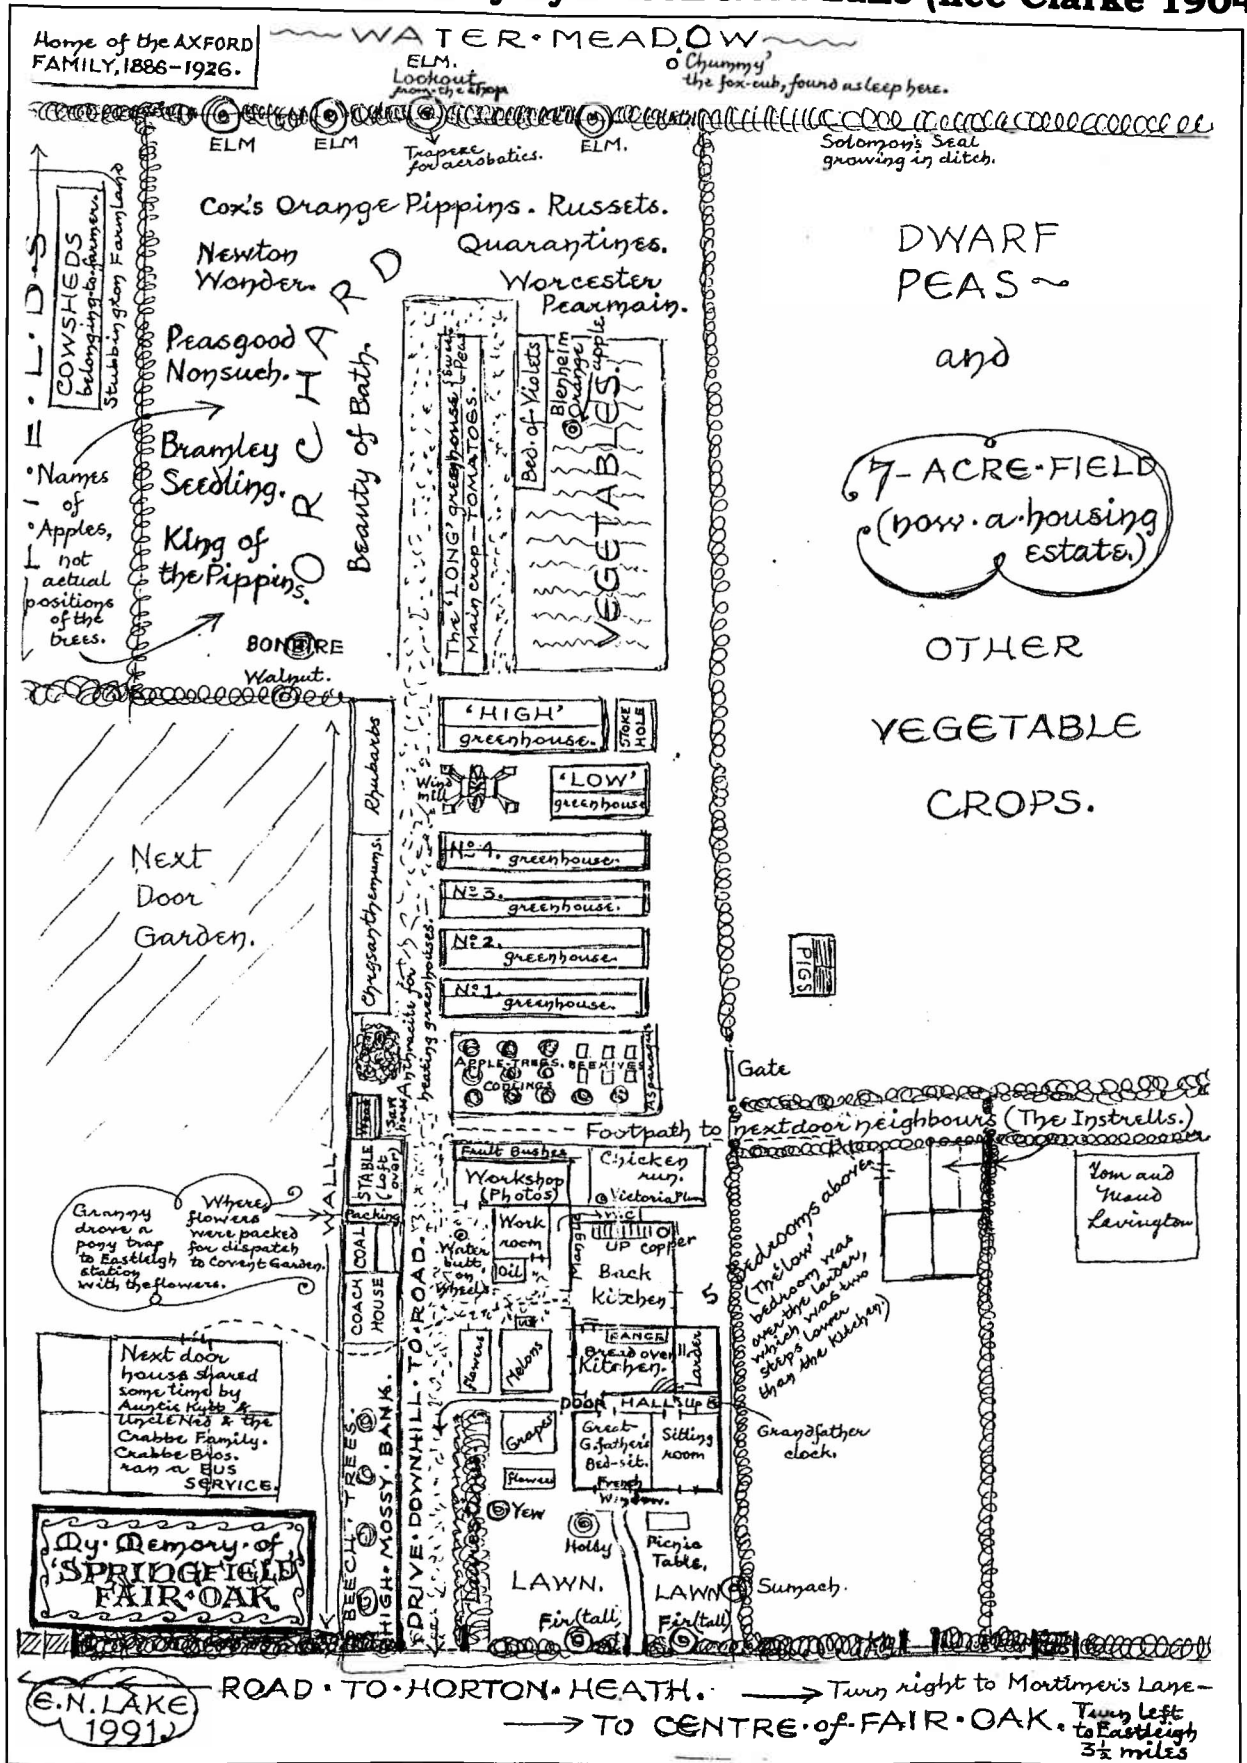 Lake (née Clarke 1904
Home of the AXFORD
FAMILY, 1886–1926.
WATER·MEADOW
ELM.
Lookout
from the shop
'Chummy'
the fox-cub, found asleep here.
ELM
ELM
Trapeze
for acrobatics.
ELM.
Solomon's Seal
growing in ditch.
F·I·E·L·D·S
COWSHEDS
belonging to farmer.
Stubbington Farmland
Cox's Orange Pippins. Russets.
Newton
Wonder.
Quarantines.
Worcester
Pearmain.
ORCHARD
Peasgood
Nonsuch.
Beauty of Bath.
Bramley
Seedling.
King of
the Pippins.
Names
of
Apples,
not
actual
positions
of the
trees.
BONFIRE
Walnut.
The 'LONG' greenhouse
Sweet
Peas
Main crop – TOMATOES.
Bed of Violets
Blenheim
Orange
apple
VEGETABLES.
DWARF
PEAS ~
and
7-ACRE·FIELD
(now·a·housing
estate.)
OTHER
VEGETABLE
CROPS.
Next
Door
Garden.
WALL
Rhubarbs
Chrysanthemums.
Anthracite for
heating greenhouses.
'HIGH'
greenhouse.
STOKE
HOLE
Wind
mill
'LOW'
greenhouse
No 4.
greenhouse.
No 3.
greenhouse.
No 2.
greenhouse.
No 1.
greenhouse.
PIGS
APPLE·TREES.
BEEHIVES
CODLINGS
Asparagus
Gate
Footpath to next door neighbours (The Instrells.)
STABLE
(Loft
over)
Packing
COAL
COACH
HOUSE
Granny
drove a
pony trap
to Eastleigh
station
with the flowers.
Where
flowers
were packed
for dispatch
to Covent Garden.
Fruit Bushes
Workshop
(Photos)
Chicken
run.
Victoria Plum
Work
room
Oil
Water
butt
on
Wheels
W.C
UP
Copper
Mangle
Back
Kitchen
5 Bedrooms above
(The 'low'
bedroom was
over the larder,
which was two
steps lower
than the kitchen.)
Tom and
Maud
Lavington
Flowers
Melons
RANGE
Bread over
Kitchen.
Larder
DOOR
HALL
Up
Grandfather
clock.
Grapes
Flowers
Great
G.father's
Bed-sit.
French
Window.
Sitting
room
Next door
house shared
some time by
Auntie Kybb &
Uncle Ned & the
Crabbe Family.
Crabbe Bros.
ran a BUS
SERVICE.
BEECH·TREES.
HIGH·MOSSY·BANK.
DRIVE·DOWNHILL·TO·ROAD.
Laurels
Yew
Holly
Picnic
Table.
LAWN.
LAWN
Sumach.
Fir (tall)
Fir (tall)
My·Memory·of
'SPRINGFIELD'
FAIR·OAK
E.N. LAKE
1991.
ROAD·TO·HORTON·HEATH.
Turn right to Mortimer's Lane–
TO CENTRE·of·FAIR·OAK.
Turn left
to Eastleigh
3½ miles